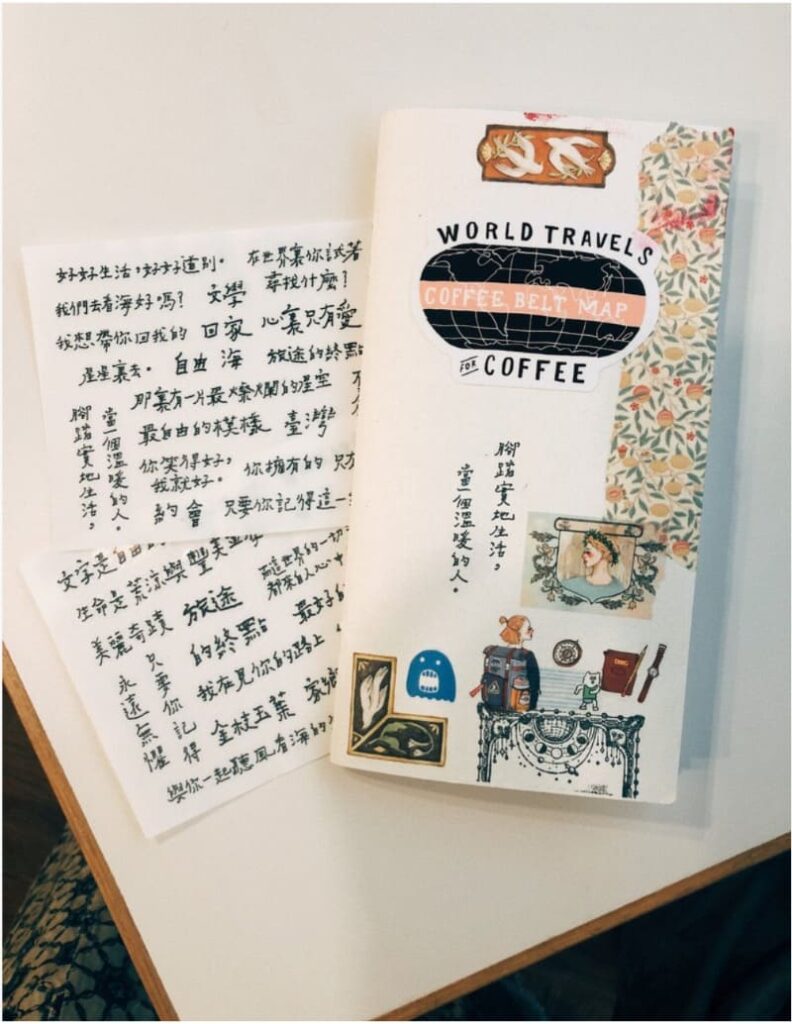 好好生活，好好道別。 在世界裏你試著
我們去看海好嗎？ 文學 尋找什麼？
我想帶你回我的 回家 心裏只有愛
星星裏去。 自由 海 旅途的終點
那裏有一片最燦爛的星空
最自由的模樣 臺灣
你笑得好， 你擁有的 只
我就好。
約會 只要你記得這一
腳踏實地生活，
當一個溫暖的人。
文字是自由的
生命是荒涼與豐美
在這世界的一切
都來自人心中
美麗奇蹟 旅途 的終點 最好的
只要你記得
永遠無懼
我在見你的路上
金枝玉葉 家鄉
與你一起聽風看海的
WORLD TRAVELS
COFFEE BELT MAP
FOR COFFEE
腳踏實地生活，
當一個溫暖的人。